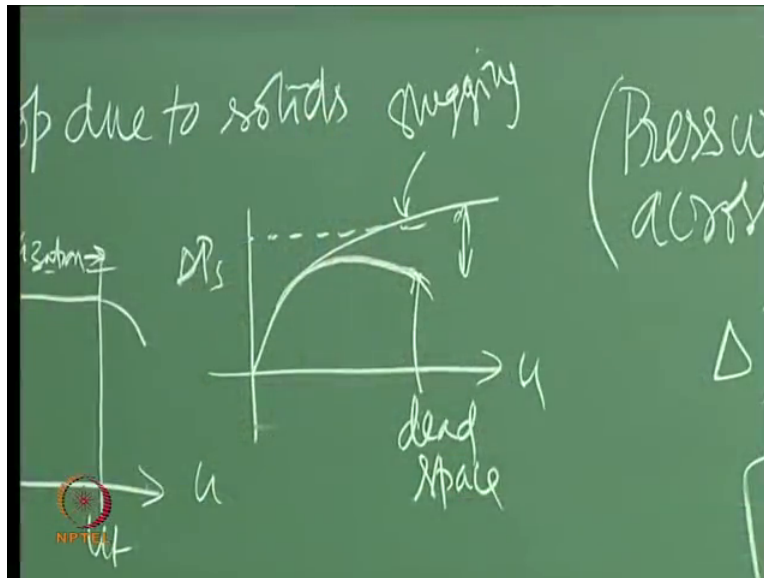 op due to solids slugging
(Pressu
across
ization
ΔPs
Δ
u
dead
space
u
ut
NPTEL